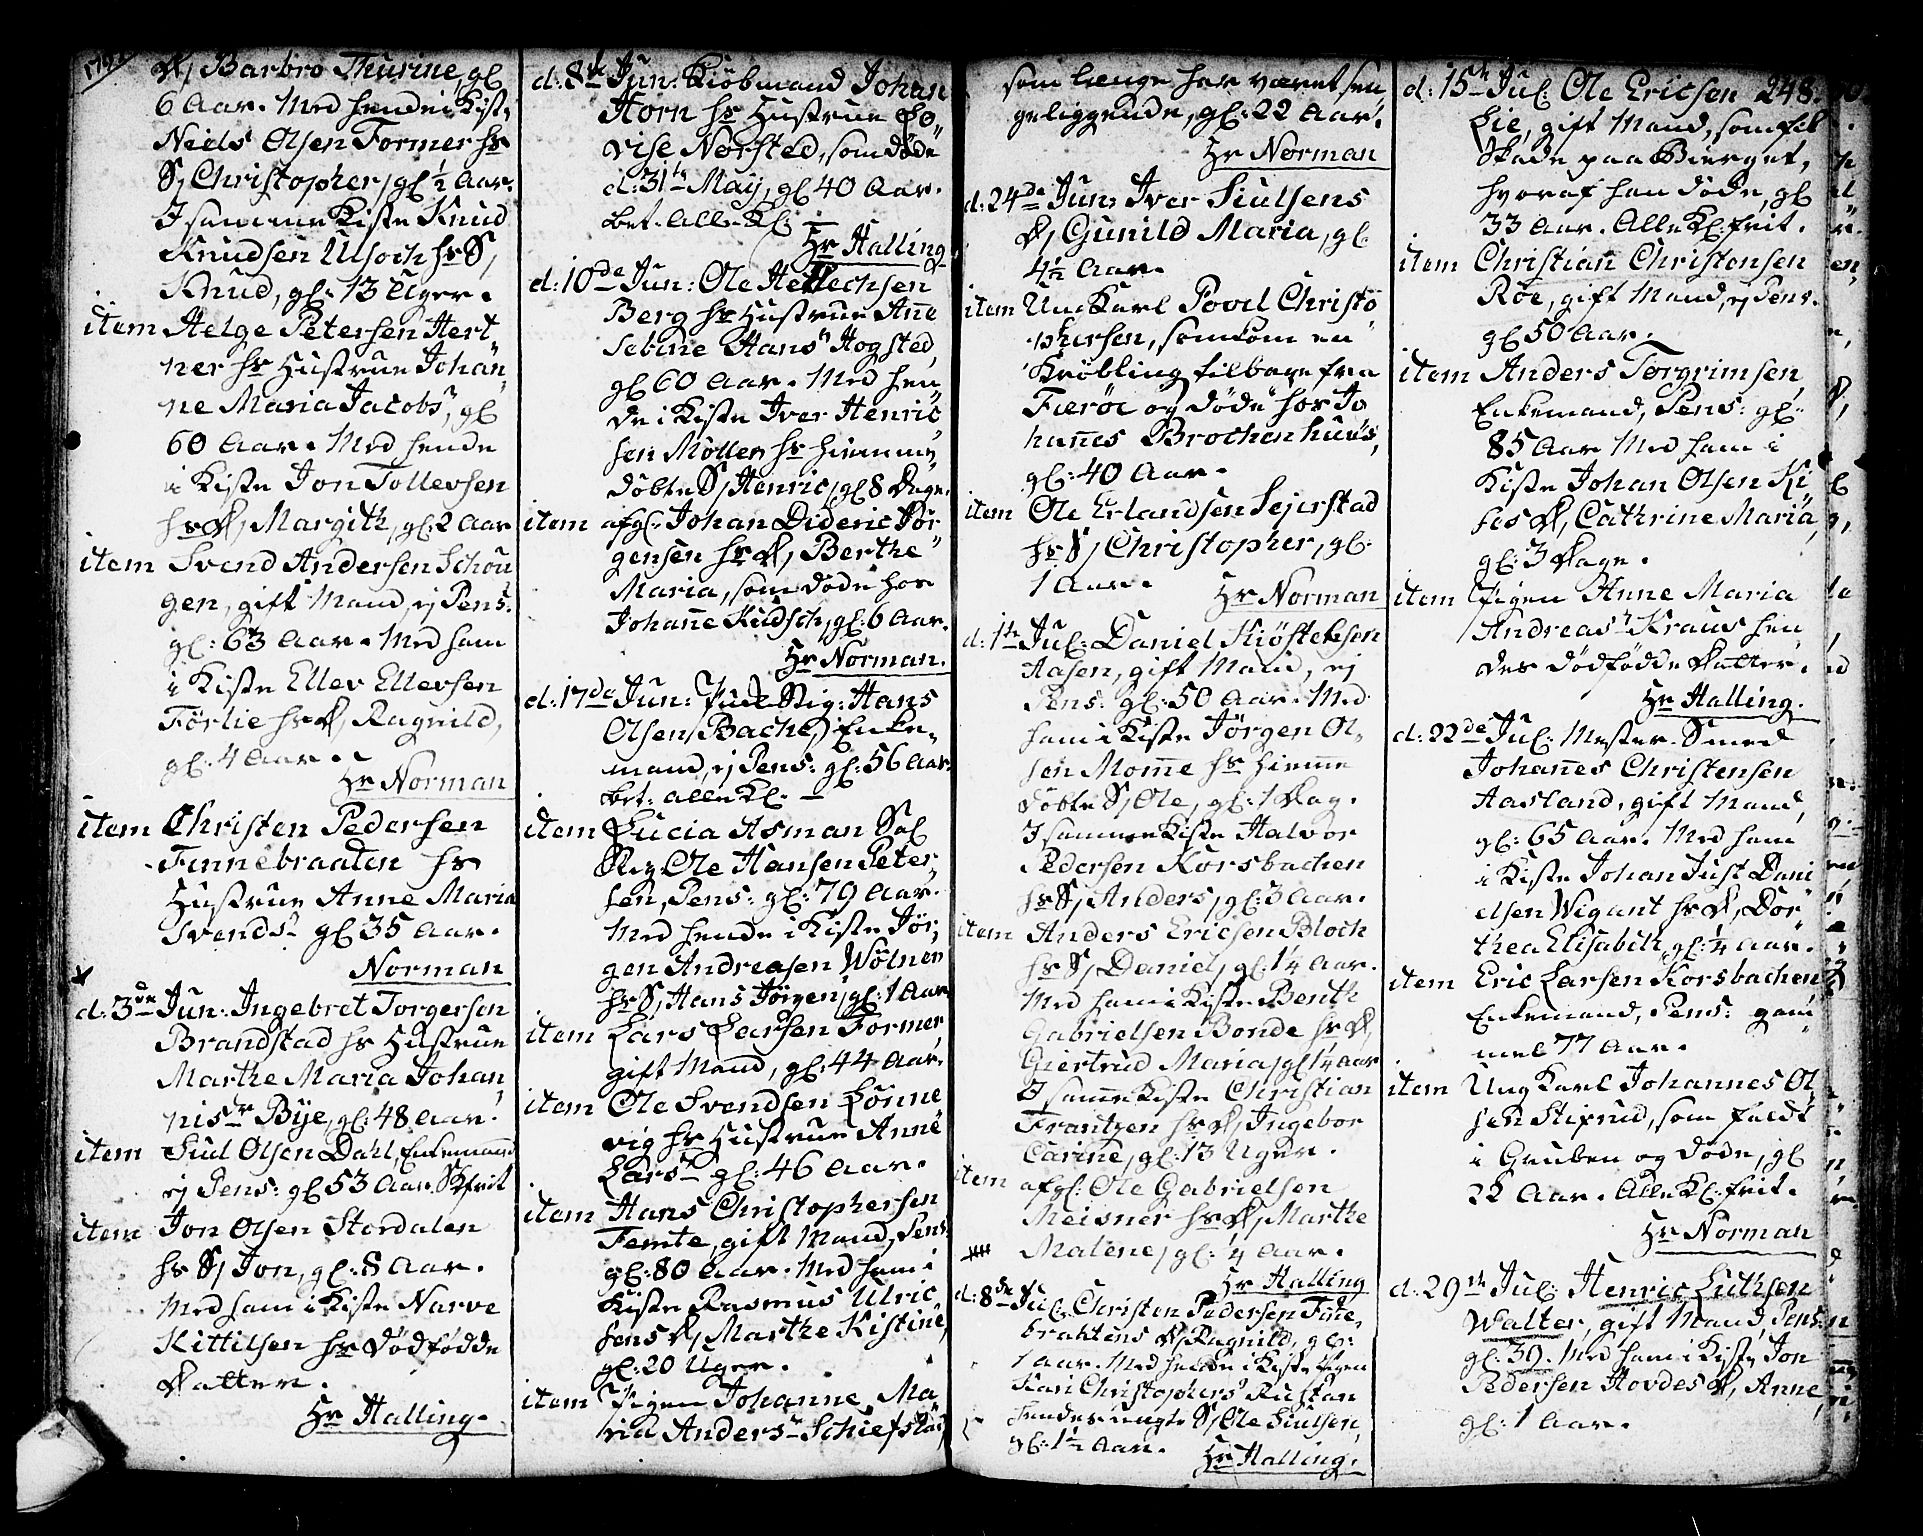 D, Barbro Thurine, gl
6 Aar. Med hende i Kist,
Niels Olsen Former hs
S, Christopher, gl ½ Aar.
I samme Kiste Knud
Knudsen Ulsoch hs S,
Knud, gl: 13 Uger.
item Helge Petersen Hert
ner hs Hustrue Johan
ne Maria Jacobsr, gl
60 Aar. Med hende
i Kiste Jon Tollevsen
hs D, Margith, gl: 2 Aar
item Svend Andersen Schou
gen, gift Mand, ej Pens:
gl: 63 Aar. Med ham
i Kiste Ellev Ellevsen
Förlie hs D, Ragnild,
gl. 4 Aar.
Hr Norman
item Christen Pedersen
Finnebraaten hs
Hustrue Anne Maria
Svendsr gl 35 Aar.
Norman
d: 3de Jun: Ingebret Torgersen
Brandstad hs Hustrue
Marthe Maria Johan
nisr Bye, gl: 48 Aar.
item Siul Olsen Dahl, Enkemand
ej Pens: gl 53 Aar. Sk frit
item Jon Olsen Stordalen
hs S, Jon, gl: 8 Aar.
Med ham i Kiste Narve
Kittilsen hs Dödfödde
Datter.
Hr Halling.
d: 8de Jun: Kiöbmand Johan
Horn hs Hustrue Lo
vise Norsted, som döde
d: 31te May, gl 40 Aar.
bet. Alle Kl
Hr Halling
d: 10de Jun: Ole Hellechsen
Berg hs Hustrue Ane
Sebine Hansr Hogsted,
gl 60 Aar. Med hen
de i Kiste Iver Henric
sen Möller hs hiemme
döbte S, Henric, gl 8 Dage.
item afgl: Johan Dideric Jör
gensen hs D, Berthe
Maria, som döde hos
Johane Kudsch, gl: 6 Aar.
Hr Norman.
d: 17de Jun: Stig: Hans
Olsen Bache, Enke
mand, ej Pens: gl: 56 Aar
bet: alle Kl.
item Lucia Asman Sal
Stig Ole Hansen Peter
sen, Pens: gl: 79 Aar.
Med hende i Kiste Jör
gen Andreasen Wölner
hs S, Hans Jörgen, gl: 1 Aar
item Lars Larsen Former,
gift Mand, gl: 44 Aar.
item Ole Svendsen Lönne
vig hs Hustrue Anne
Larsr gl: 46 Aar.
item Hans Christophersen
Femte, gift Mand, Pens
gl: 80 Aar. Med ham i
Kiste Rasmus Ulric
sens D, Marthe Kistine,
gl: 20 Uger.
item Pigen Johanne Ma
ria Andersr Schiefstad,
som længe har været sen
geliggende, gl: 22 Aar.
Hr Norman
d: 24de Jun: Iver Siulsens
D, Gunild Maria, gl.
4½ Aar.
item Ung Karl Povel Christo
phersen, som kom en
Kröbling tilbage fra
Færöe og döde hos Jo
hannes Brochenhuus,
gl: 40 Aar.
item Ole Erlandsen Sejerstad
hs S, Christopher, gl:
1 Aar. Hr Norman
d: 1te Jul: Daniel Kiöstelsen
Aasen, gift Mand, ej
Pens: gl: 50 Aar. Med
ham i Kiste Jörgen Ol
sen Mome hs hieme
döbte S, Ole, gl: 1 Dag.
I samme Kiste Halvor
Pedersen Korsbachen
hs S, Anders, gl: 3 Aar.
item Anders Ericsen Bloch
hs S, Daniel, gl: 1¼ Aar.
Med ham i Kiste Benth
Gabrielsen Bonde hs D,
Giertrud Maria, gl 1¼ Aar
I same Kiste Christian
Frantzen hs D, Ingebor
Carine, gl: 13 Uger.
item afgl: Ole Gabrielsen
Meisner hs D, Marthe
Malene, gl: ¼ Aar.
Hr Halling
d: 8de Jul: Christen Pedersen Fine
brahtens D, Ragnild, gl:
1 Aar. Med hende i Kiste Pigen
Kari Christophersr Rustan
hendes uægte S, Ole Siulsen,
gl: 1½ Aar. Hr Halling.
d: 15de Jul: Ole Ericsen 248.
Lie, gift Mand, som fik
Skade paa Bierget,
hvoraf han döde, gl
33 Aar. Alle Kl: frit.
item Christian Christensen
Röe, gift Mand, ej Pens.
gl 50 Aar.
item Anders Torgrimsen,
Enkemand, Pens: gl:
85 Aar Med ham i
Kiste Johan Olsen Ki
ses D, Cathrine Maria,
gl: 3 Dage.
item Pigen Anne Maria
Andreasr Kraus hen
des dödfödde Datter.
Hr Halling.
d: 22de Jul: Mester Smed
Johannes Christensen
Aasland, gift Mand,
gl: 65 Aar. Med ham
i Kiste Johan Just Dani
elsen Wigant hs D, Dor
thea Elisabeth, gl: ¼ Aar.
item Eric Larsen Korsbachen
Enkemand, Pens: gam
mel 77 Aar.
item Ung Karl Johannes Ol
sen Stifrud, som faldt
i Gruben og döde, gl
22 Aar. Alle Kl: frit.
Hr Norman
d: 29de Jul: Henric Luthsen
Walter, gift Mand, Pens:
gl: 39. Med ham i Kiste Jon
Pedersen Hovdes D, Anne,
gl: 1 Aar.